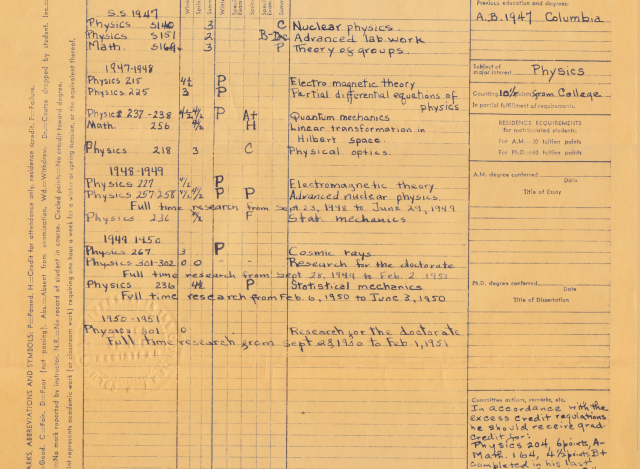 S.S. 1947
Physics S140 3 C Nuclear physics.
Physics S151 2 B- Advanced lab. work
Math. S164 3 P Theory of groups.
1947-1948
Physics 215 4½ P Electro magnetic theory
Physics 225 3 P Partial differential equations of
physics
Physics 237-238 4½ 4½ P A+ Quantum mechanics
Math. 256 4½ H Linear transformation in
Hilbert space.
Physics 218 3 C Physical optics.
1948-1949
Physics 227 4½ P Electromagnetic theory
Physics 257-258 4½ 4½ P P Advanced nuclear physics.
Full time research from Sept 23, 1948 to June 29, 1949
Physics 236 4½ F Stat. mechanics
1949 1450
Physics 267 3 P Cosmic rays
Physics 301-302 0 0 - - Research for the doctorate
Full time research from Sept 28, 1949 to Feb 2, 1950
Physics 236 4½ P Statistical mechanics
Full time research from Feb. 6, 1950 to June 3, 1950
1950-1951
Physics 301 0 - Research for the doctorate
Full time research from Sept 28, 1950 to Feb 1, 1951
Previous education and degrees:
A.B. 1947 Columbia
Subject of
major interest Physics
Counting 10½ points from College
In partial fulfillment of requirements.
RESIDENCE REQUIREMENTS
for matriculated students:
For A.M.—30 tuition points
For Ph.D.—60 tuition points
A.M. degree conferred
Date
Title of Essay
Ph.D. degree conferred
Date
Title of Dissertation
Committee actions, remarks, etc.
In accordance with the
excess credit regulations
he should receive grad.
credit for:
Physics 204, 6 points, A-
Math. 164, 4½ points, B+
completed in his last
MARKS, ABBREVIATIONS AND SYMBOLS: P=Passed. H=Credit for attendance only, residence credit. F=Failure.
Good. C=Fair. D=Poor (not passing). Abs=Absent from examination. Wd=Withdrew. Dr=Course dropped by student. Inc=
No mark reported by instructor. N.R.=No record of student in course. Circled points=No credit toward degree.